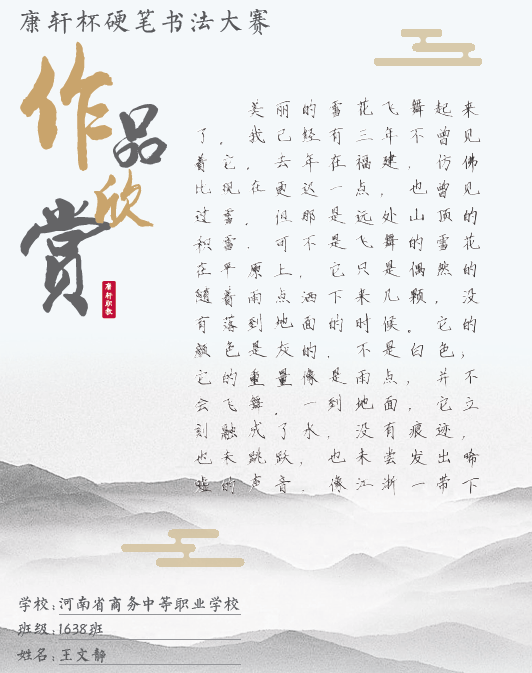 康轩杯硬笔书法大赛
作品欣赏
康轩职教
美丽的雪花飞舞起来
了。我已经有三年不曾见
着它。去年在福建，仿佛
比现在更迟一点，也曾见
过雪。但那是远处山顶的
积雪，可不是飞舞的雪花。
在平原上，它只是偶然的
随着雨点洒下来几颗，没
有落到地面的时候。它的
颜色是灰的，不是白色；
它的重量像是雨点，并不
会飞舞。一到地面，它立
刻融成了水，没有痕迹，
也未跳跃，也未尝发出唏
嘘的声音，像江浙一带下
学校：河南省商务中等职业学校
班级：1638班
姓名：王文静